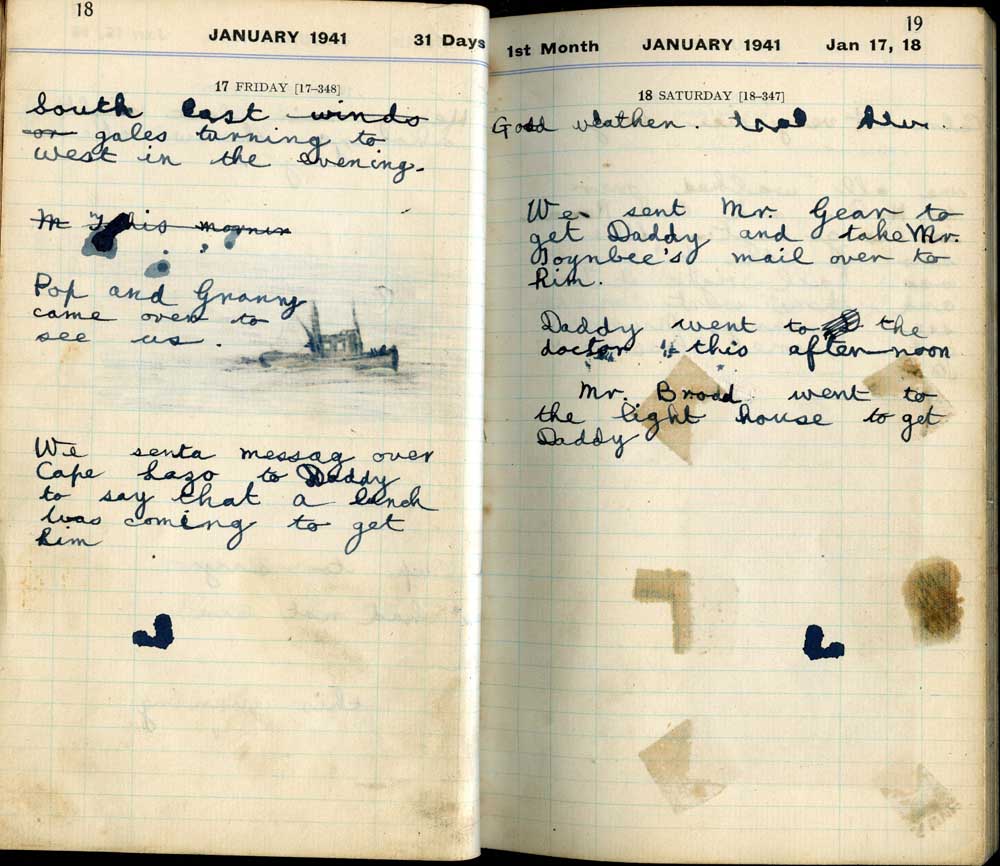 18
JANUARY 1941 31 Days
17 FRIDAY [17–348]
South East winds
or gales turning to
west in the evening.
this mornin
Pop and Granny
came over to
see us.
We senta messag over
Cape Lazo to Daddy
to say that a lanch
was coming to get
him
19
1st Month JANUARY 1941 Jan 17, 18
18 SATURDAY [18–347]
Good weather.
We sent Mr. Gear to
get Daddy and take Mr.
Toynbee's mail over to
him.
Daddy went to the
doctor this after noon
Mr. went to
the light house to get
Daddy